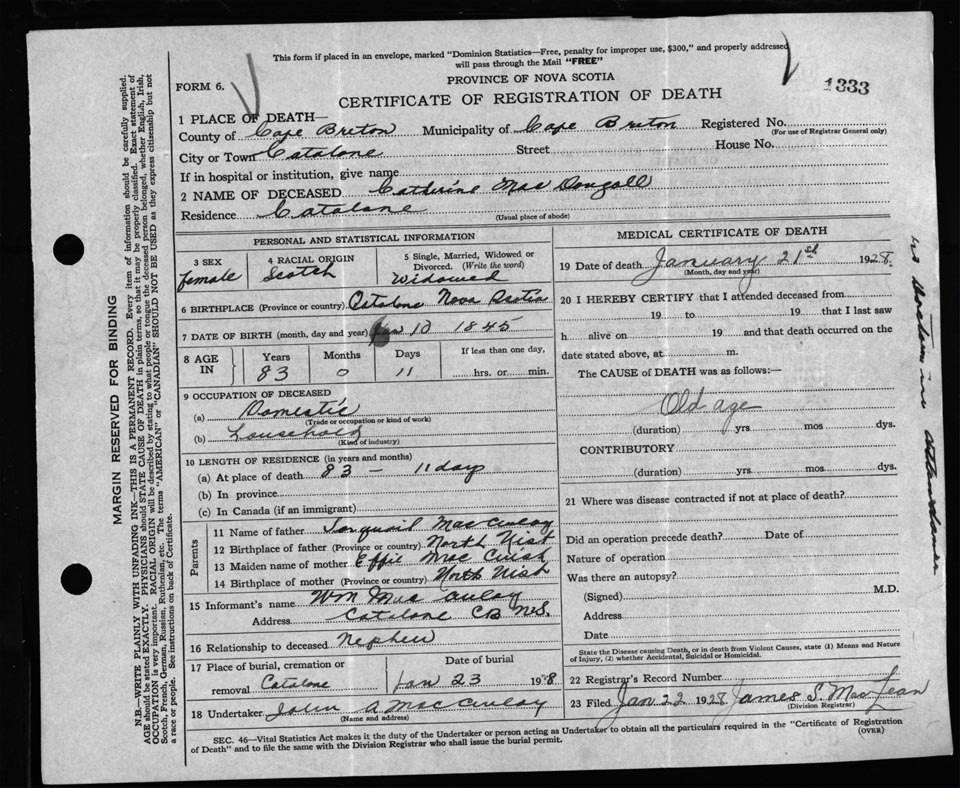 This form if placed in an envelope, marked "Dominion Statistics—Free, penalty for improper use, $300," and properly addressed
will pass through the Mail "FREE"
PROVINCE OF NOVA SCOTIA
FORM 6.
1333
CERTIFICATE OF REGISTRATION OF DEATH
1 PLACE OF DEATH—
County of Cape Breton Municipality of Cape Breton Registered No.
(For use of Registrar General only)
City or Town Catalone Street House No.
If in hospital or institution, give name
2 NAME OF DECEASED Catherine MacDougall
Residence Catalone
(Usual place of abode)
PERSONAL AND STATISTICAL INFORMATION
3 SEX female
4 RACIAL ORIGIN Scotch
5 Single, Married, Widowed or Divorced. (Write the word) Widowed
6 BIRTHPLACE (Province or country) Catalone Nova Scotia
7 DATE OF BIRTH (month, day and year) Jan 10 1845
8 AGE IN Years Months Days If less than one day,
83 0 11 hrs. or min.
9 OCCUPATION OF DECEASED
(a) Domestic
(Trade or occupation or kind of work)
(b) household
(Kind of industry)
10 LENGTH OF RESIDENCE (in years and months)
(a) At place of death 83 – 11 days
(b) In province
(c) In Canada (if an immigrant)
Parents
11 Name of father Torquail MacAulay
12 Birthplace of father (Province or country) North Uist
13 Maiden name of mother Effie MacCuish
14 Birthplace of mother (Province or country) North Uist
15 Informant's name Wm MacAulay
Address Catalone CB N.S.
16 Relationship to deceased Nephew
17 Place of burial, cremation or removal Catalone
Date of burial Jan 23 1928
18 Undertaker John A MacAulay
(Name and address)
MEDICAL CERTIFICATE OF DEATH
19 Date of death January 21st 1928.
(Month, day and year)
20 I HEREBY CERTIFY that I attended deceased from
19 to 19 that I last saw
h alive on 19 and that death occurred on the
date stated above, at m.
The CAUSE of DEATH was as follows:—
Old age
(duration) yrs. mos dys.
CONTRIBUTORY
(duration) yrs. mos dys.
21 Where was disease contracted if not at place of death?
Did an operation precede death? Date of
Nature of operation
Was there an autopsy?
(Signed) M.D.
Address
Date
State the Disease causing Death, or in death from Violent Causes, state (1) Means and Nature
of Injury, (2) whether Accidental, Suicidal or Homicidal.
22 Registrar's Record Number
23 Filed Jan 22 1928 James S. MacLean
(Division Registrar)
SEC. 46—Vital Statistics Act makes it the duty of the Undertaker or person acting as Undertaker to obtain all the particulars required in the "Certificate of Registration
of Death" and to file the same with the Division Registrar who shall issue the burial permit.
(OVER)
MARGIN RESERVED FOR BINDING
N.B.—WRITE PLAINLY WITH UNFADING INK—THIS IS A PERMANENT RECORD. Every item of information should be carefully supplied.
AGE should be stated EXACTLY. PHYSICIANS should STATE CAUSE OF DEATH in plain terms, so that it may be properly classified. Exact statement of
OCCUPATION is very important. RACIAL ORIGIN will be described by stating to what people or tongue the deceased person belonged, whether English, Irish,
Scotch, French, German, Russian, Ruthenian, etc. The terms "AMERICAN" or "CANADIAN" SHOULD NOT BE USED as they express citizenship but not
a race or people. See instructions on back of Certificate.
no Doctor in attendance